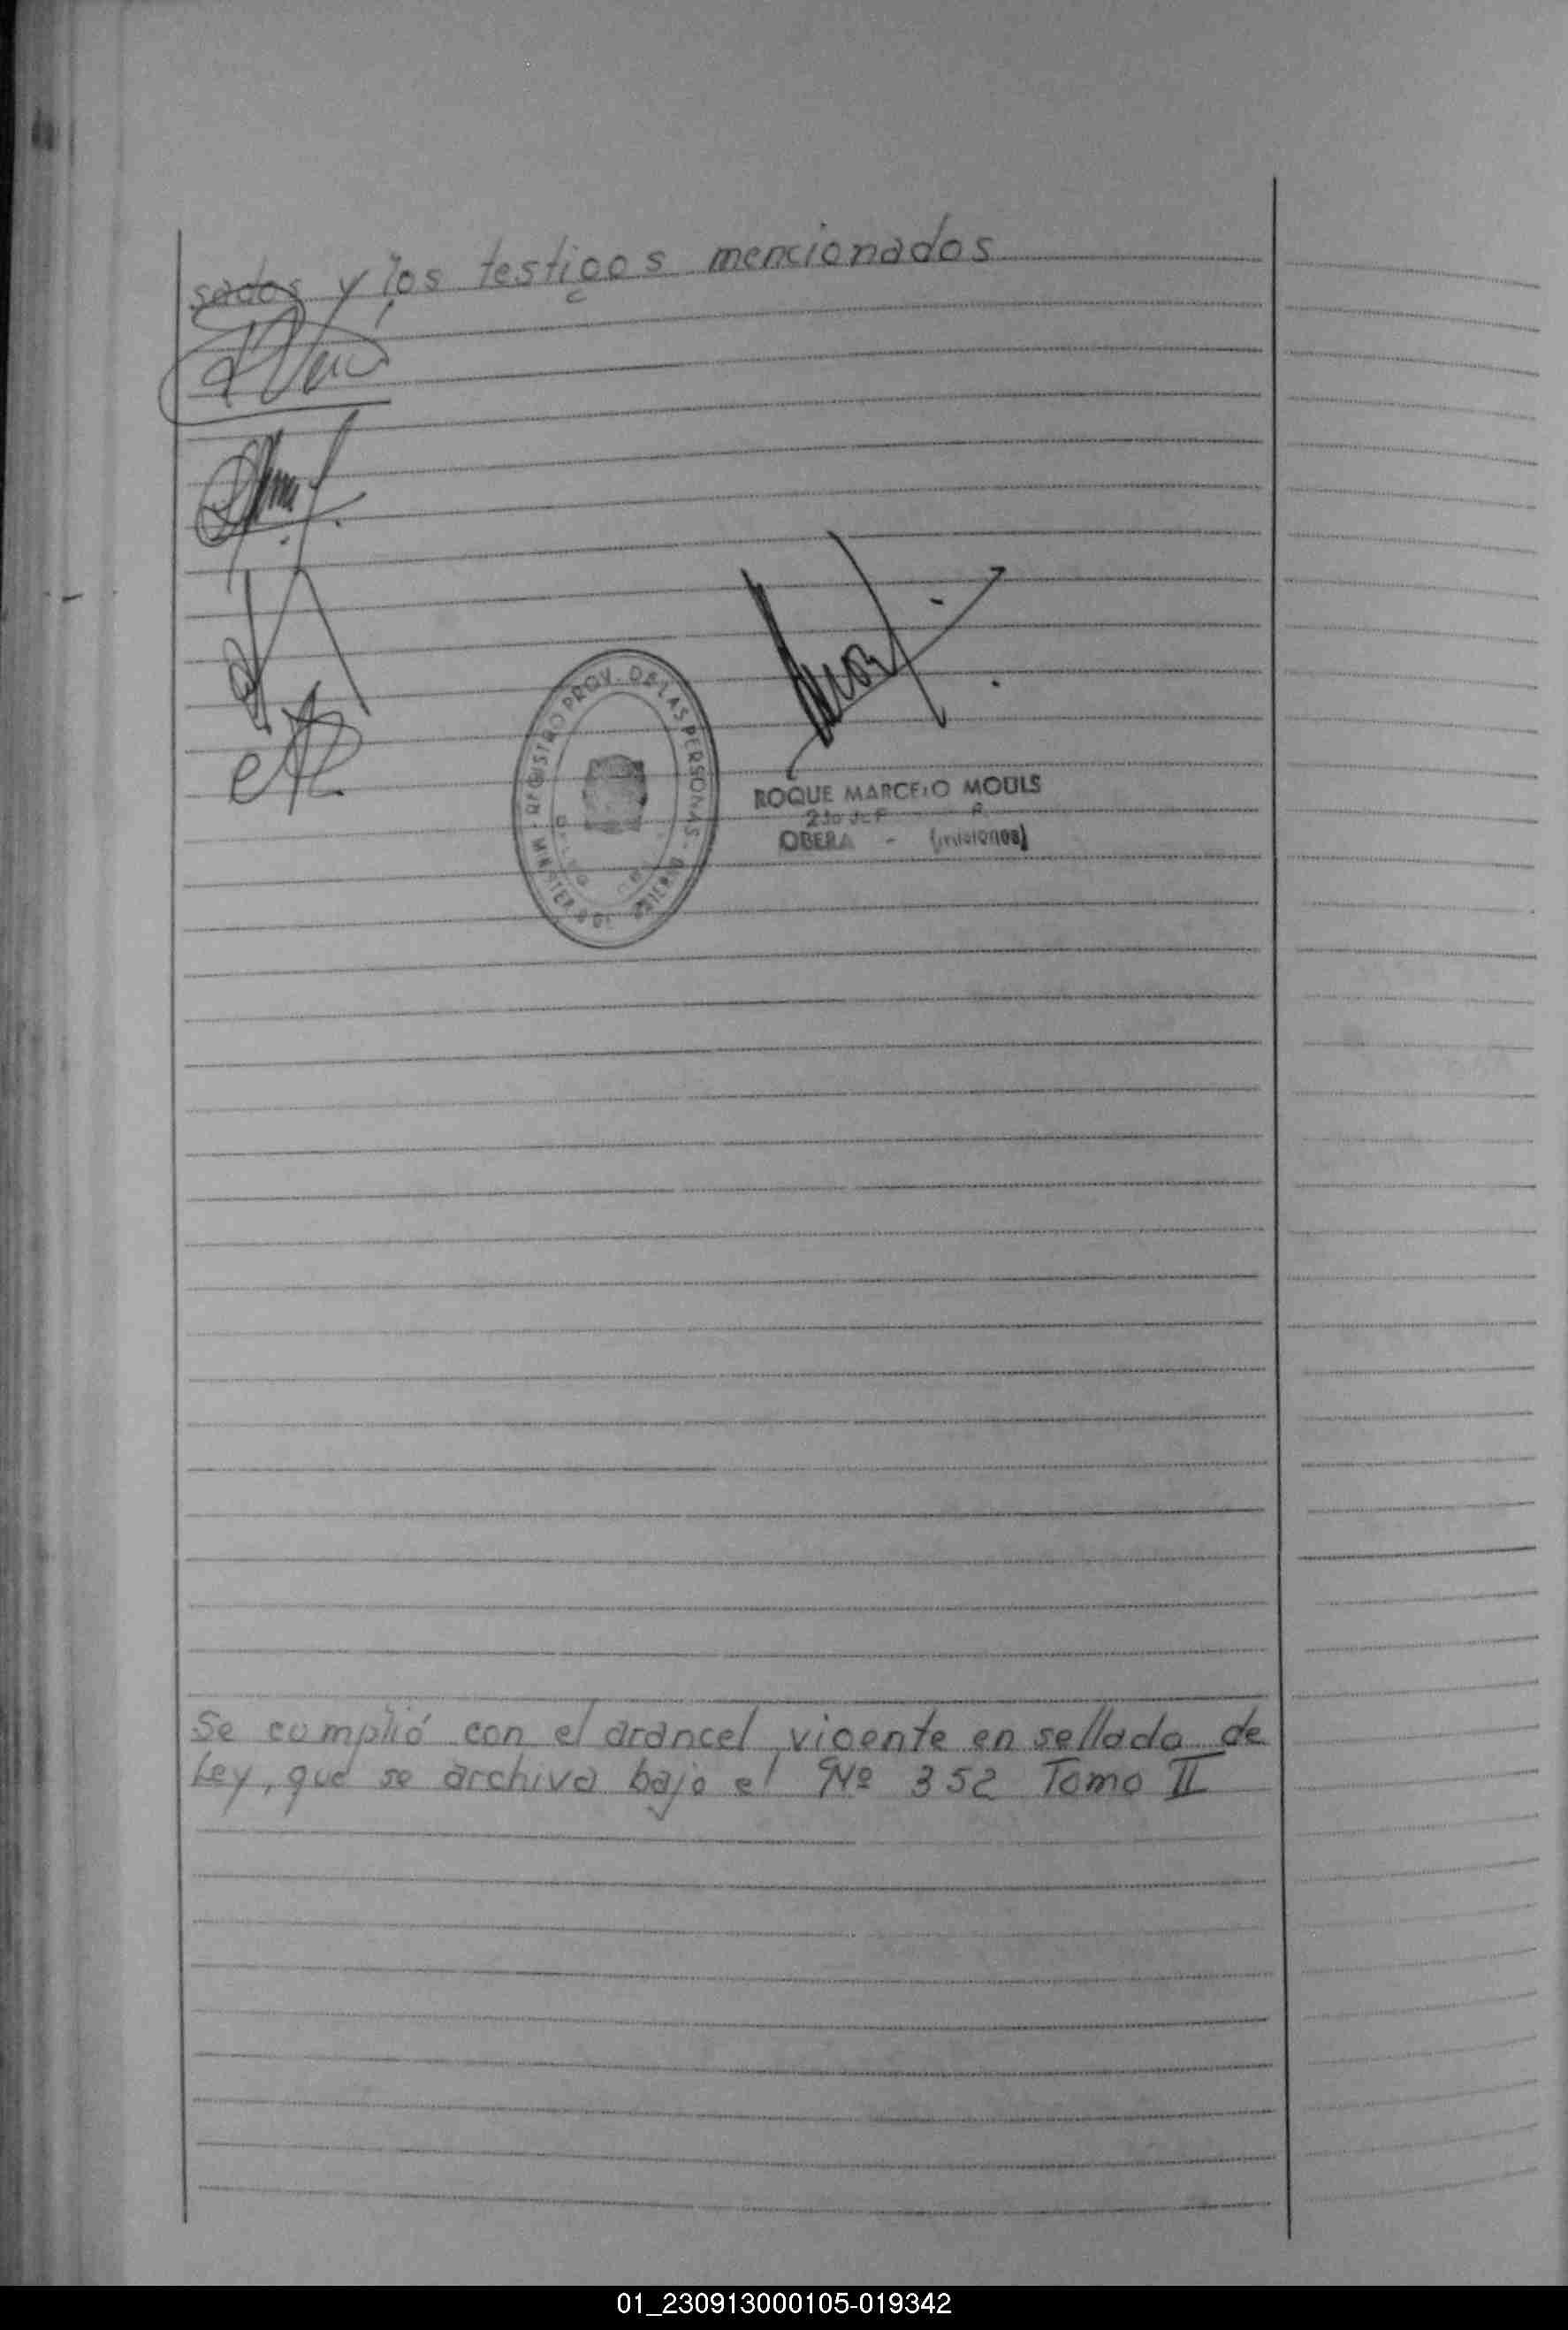 sados y los testigos mencionados
REGISTRO PROV. DE LAS PERSONAS
ROQUE MARCELO MOULS
OBERA - (misiones)
Se cumplió con el arancel vigente en sellado de
Ley, que se archiva bajo el Nº 352 Tomo II
01_230913000105-019342